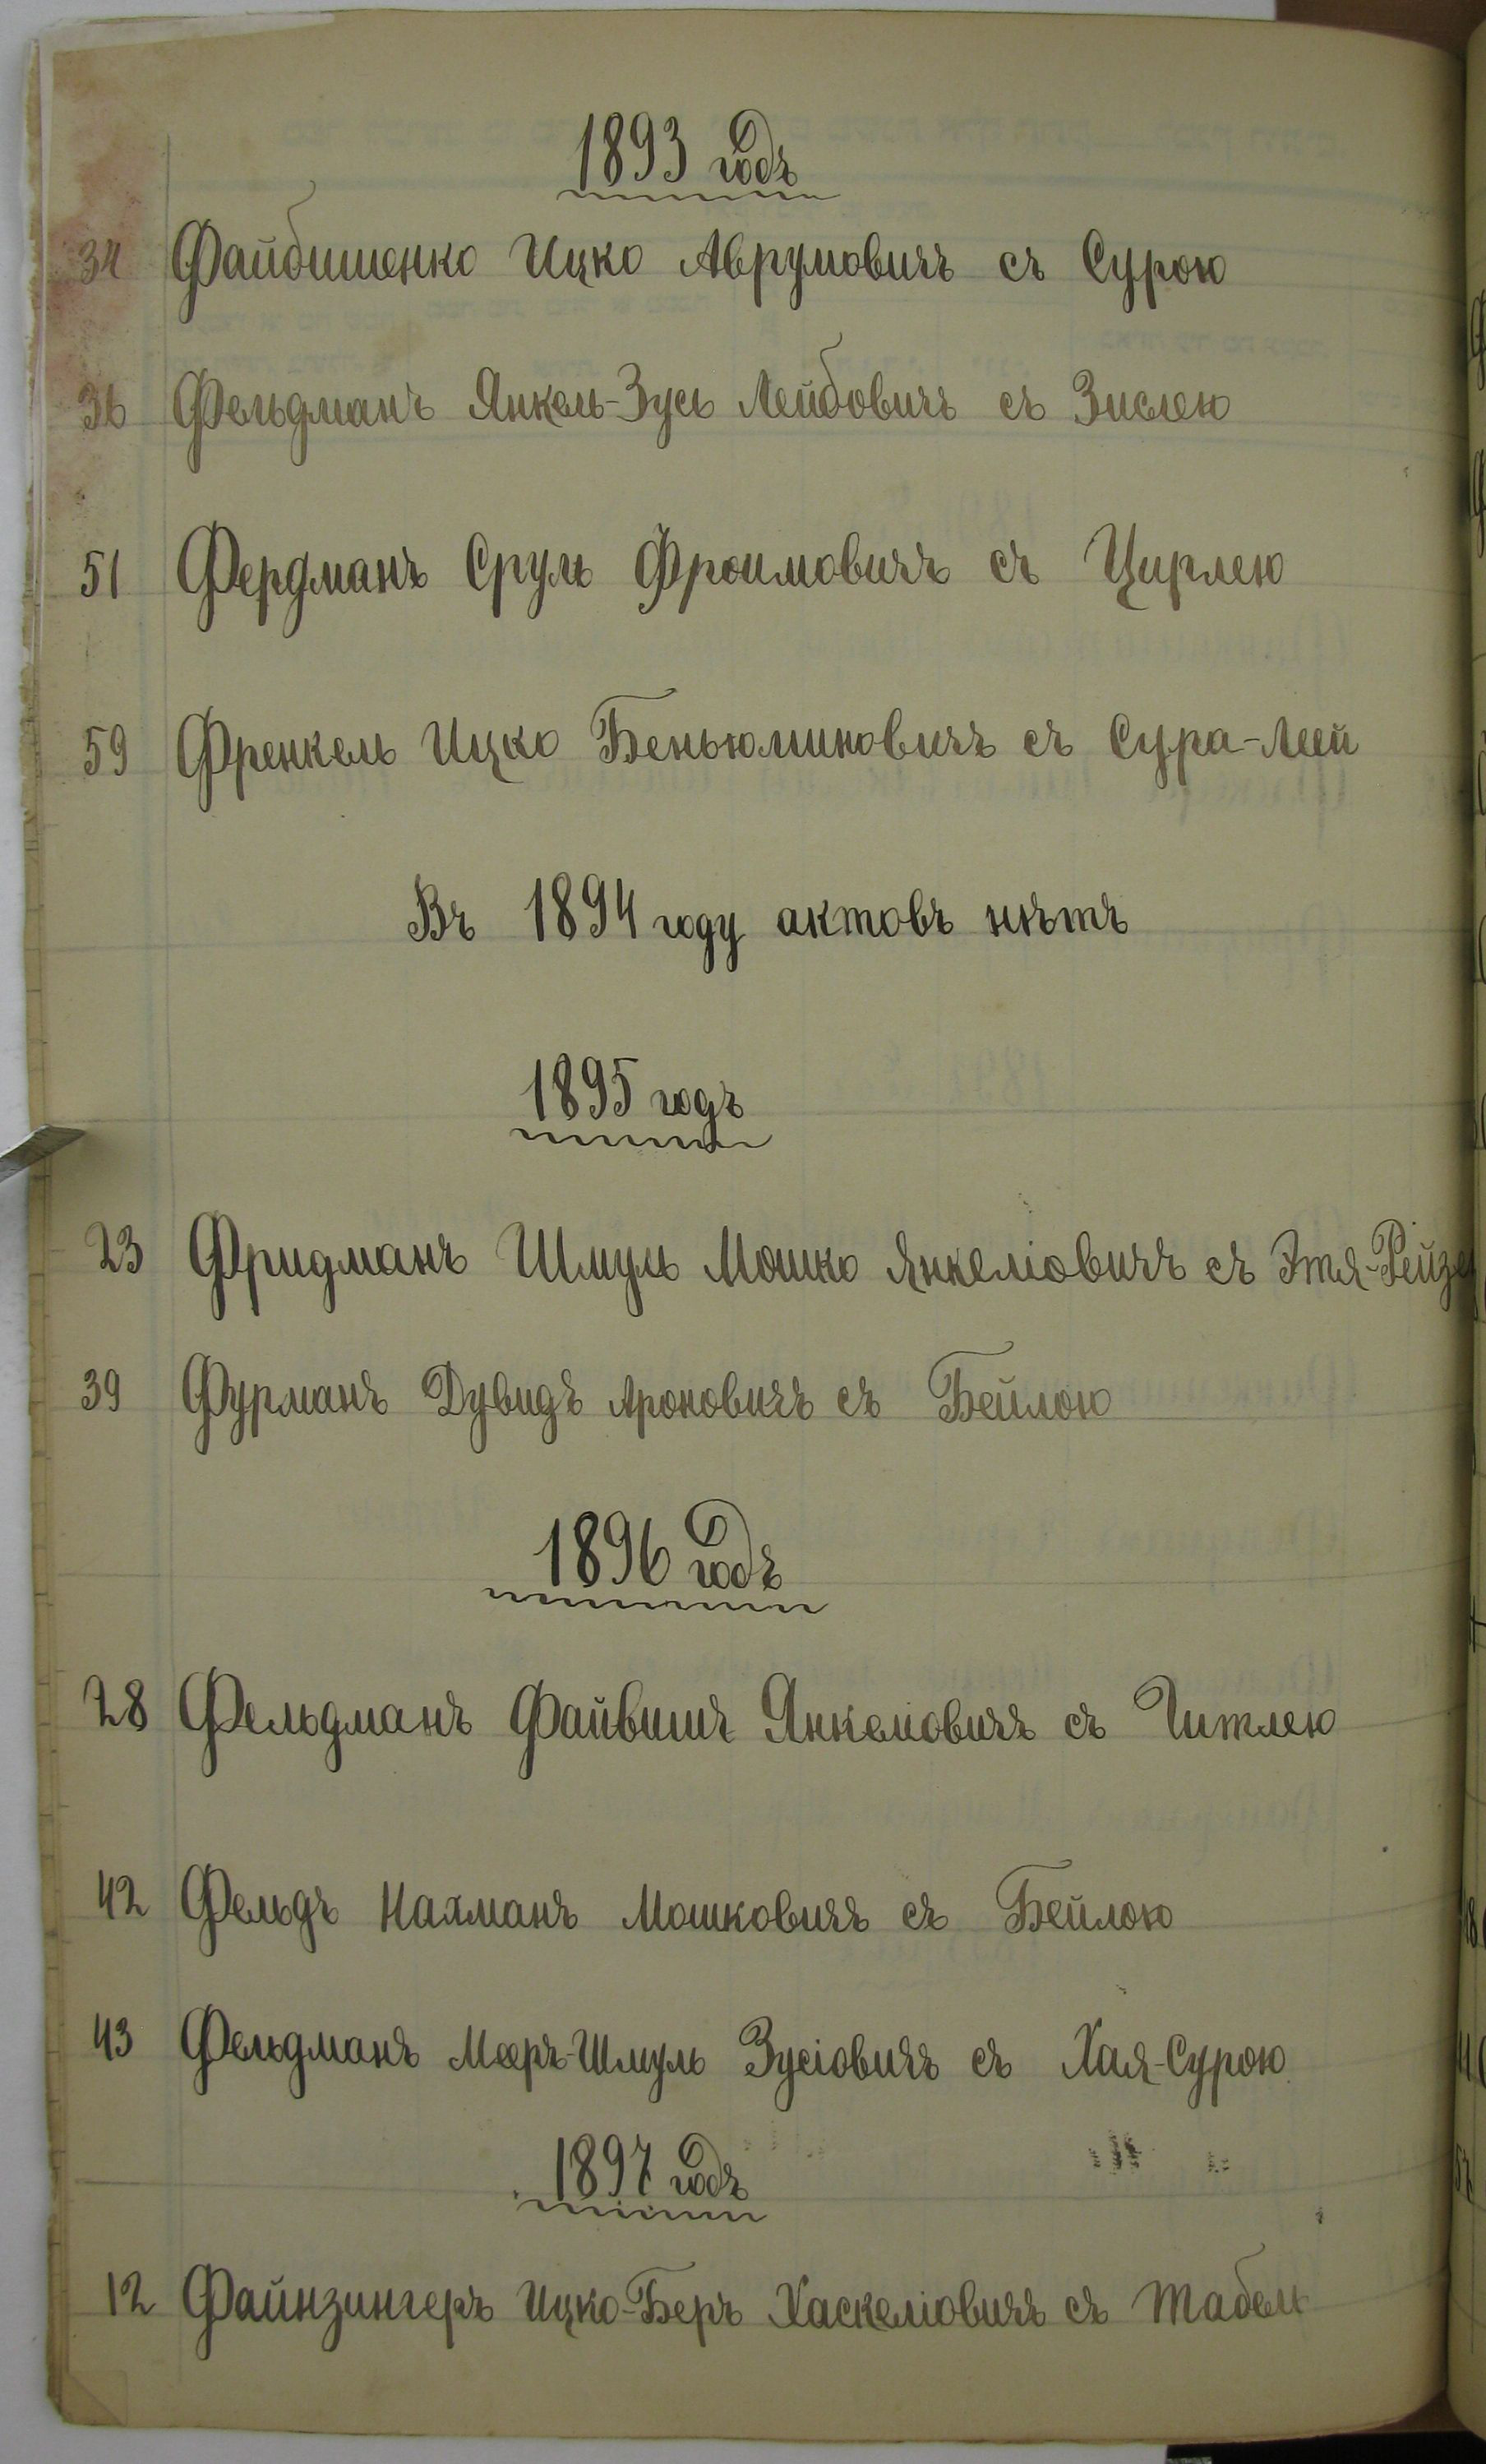 1893 годъ
34 Файбишенко Ицко Аврумовичъ съ Сурою
36 Фельдманъ Янкель-Зусь Лейбовичъ съ Зислею
51 Фердманъ Сруль Фроимовичъ съ Цирлею
59 Френкель Ицко Беньюминовичъ съ Сура-Леей
Въ 1894 году актовъ нѣтъ
1895 годъ
23 Фридманъ Шмуль Мошко Янкеліовичъ съ Этя-Рейзе
39 Фурманъ Дувидъ Ароновичъ съ Бейлою
1896 годъ
28 Фельдманъ Файвишъ Янкеліовичъ съ Гитлею
42 Фельдъ Нахманъ Мошковичъ съ Бейлою
43 Фельдманъ Мееръ-Шмуль Зусіовичъ съ Хая-Сурою
1897 годъ
12 Файнзингеръ Ицко-Беръ Хаскеліовичъ съ